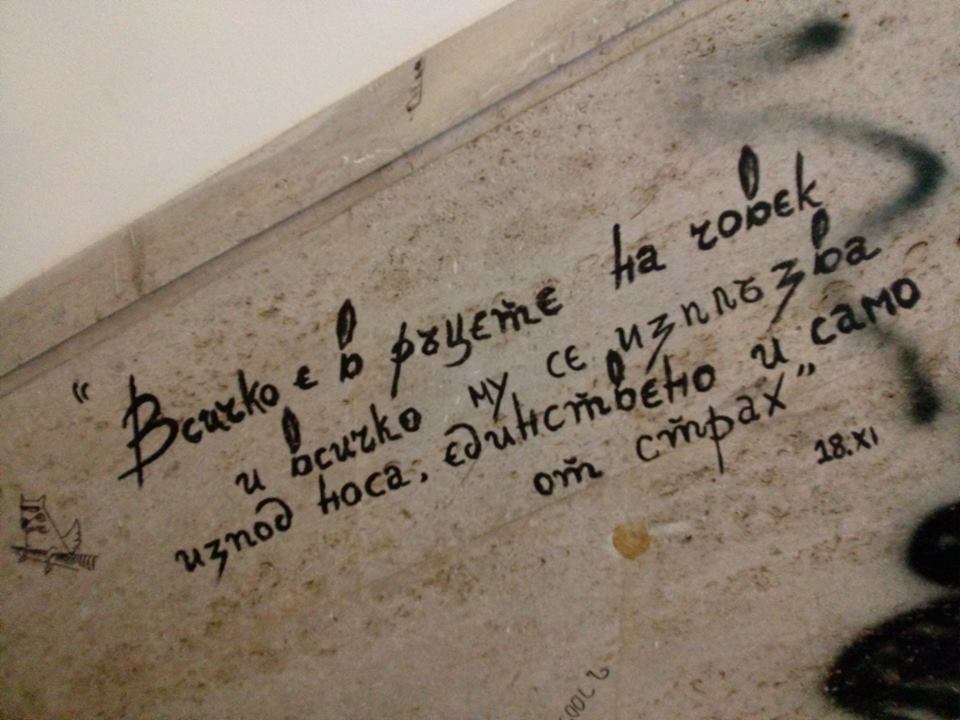 "Всичко е в ръцете на човек
и всичко му се изплъзва
изпод носа, единствено и само
от страх"
18.XI